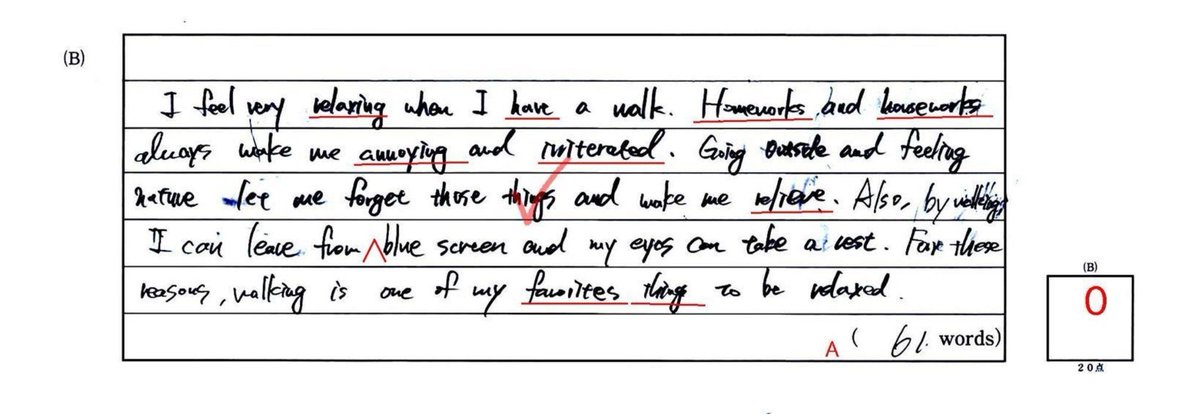 (B)
I feel very relaxing when I have a walk. Homeworks and houseworks
always make me annoying and irriterated. Going outside and feeling
nature let me forget those things and make me relieve. Also, by walking,
I can leave from blue screen and my eyes can take a rest. For these
reasons, walking is one of my favorites thing to be relaxed.
A ( 61 words)
(B)
0
20点